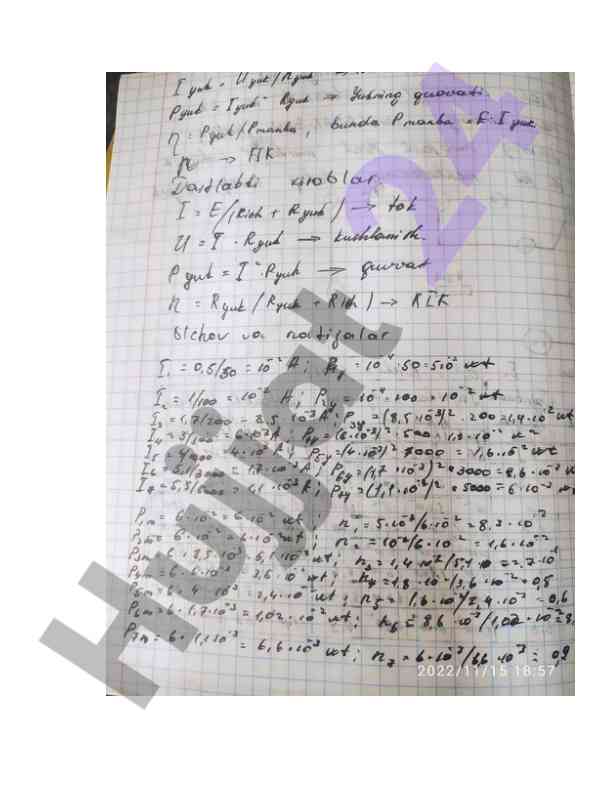 I yuk = U yuk/Ryuk,
Pyuk = Iyuk² Ryuk → Yukning quvvati
η = Pyuk/Pmanba, bunda Pmanba = E·I yuk
η → FIK
Dastlabki
I = E/(Rich + Ryuk) → tok
U = I · Ryuk → kuchlanish.
P yuk = I²·Ryuk → quvvat
η = Ryuk/(Ryuk + Rich) → FIK
Olchov va natijalar
I₁ = 0,5/50 = 10⁻² A; = 10⁻⁴ · 50 = 5·10⁻³ wt
I₂ = 1/100 = 10⁻² A; P₂y = 10⁻⁴ · 100 = 10⁻² wt
I₃ = 1,7/200 = 8,5·10⁻³ A; P₃y = (8,5·10⁻³)² · 200 = 1,4·10⁻² wt
I₄ = 3/500 = 6·10⁻³ A; P₄y = (6·10⁻³)² · 500 = 1,8·10⁻²
I₅ = 4·10⁻³ A; P₅y = (4·10⁻³)² = 1,6·10⁻² wt
I₆ = 5,1/3000 = 1,7·10⁻³ A; P₆y = (1,7·10⁻³)² · 3000 = 8,6·10⁻³ w
I₇ = 5,5/5000 = 1,1·10⁻³ A; P₇y = (1,1·10⁻³)² · 5000 = 6·10⁻³ wt
P₁m = 6·10⁻² = 6·10⁻² wt η₁ = 5·10⁻³/6·10⁻² = 8,3·10⁻²
P₂m = 6·10⁻² = 6·10⁻² wt; η₂ = 10⁻²/6·10⁻² = 1,6·10⁻²
P₃m = 6·8,5·10⁻³ = 5,1·10⁻² wt; η₃ = 1,4·10⁻²/5,1·10 = 2,7·10⁻¹
P₄m = 6·6·10⁻³ = 3,6·10⁻² wt; η₄ = 1,8·10⁻²/3,6·10⁻² = 0,5
P₅m = 6·4·10⁻³ = 2,4·10⁻² wt; η₅ = 1,6·10⁻²/2,4·10⁻² = 0,6
P₆m = 6·1,7·10⁻³ = 1,02·10⁻² wt; η₆ = 8,6·10⁻³/1,02·10⁻² =
P₇m = 6·1,1·10⁻³ = 6,6·10⁻³ wt; η₇ = 6·10⁻³/6,6·10⁻³ = 0,9
2022/11/15 18:57
Hujjat 24